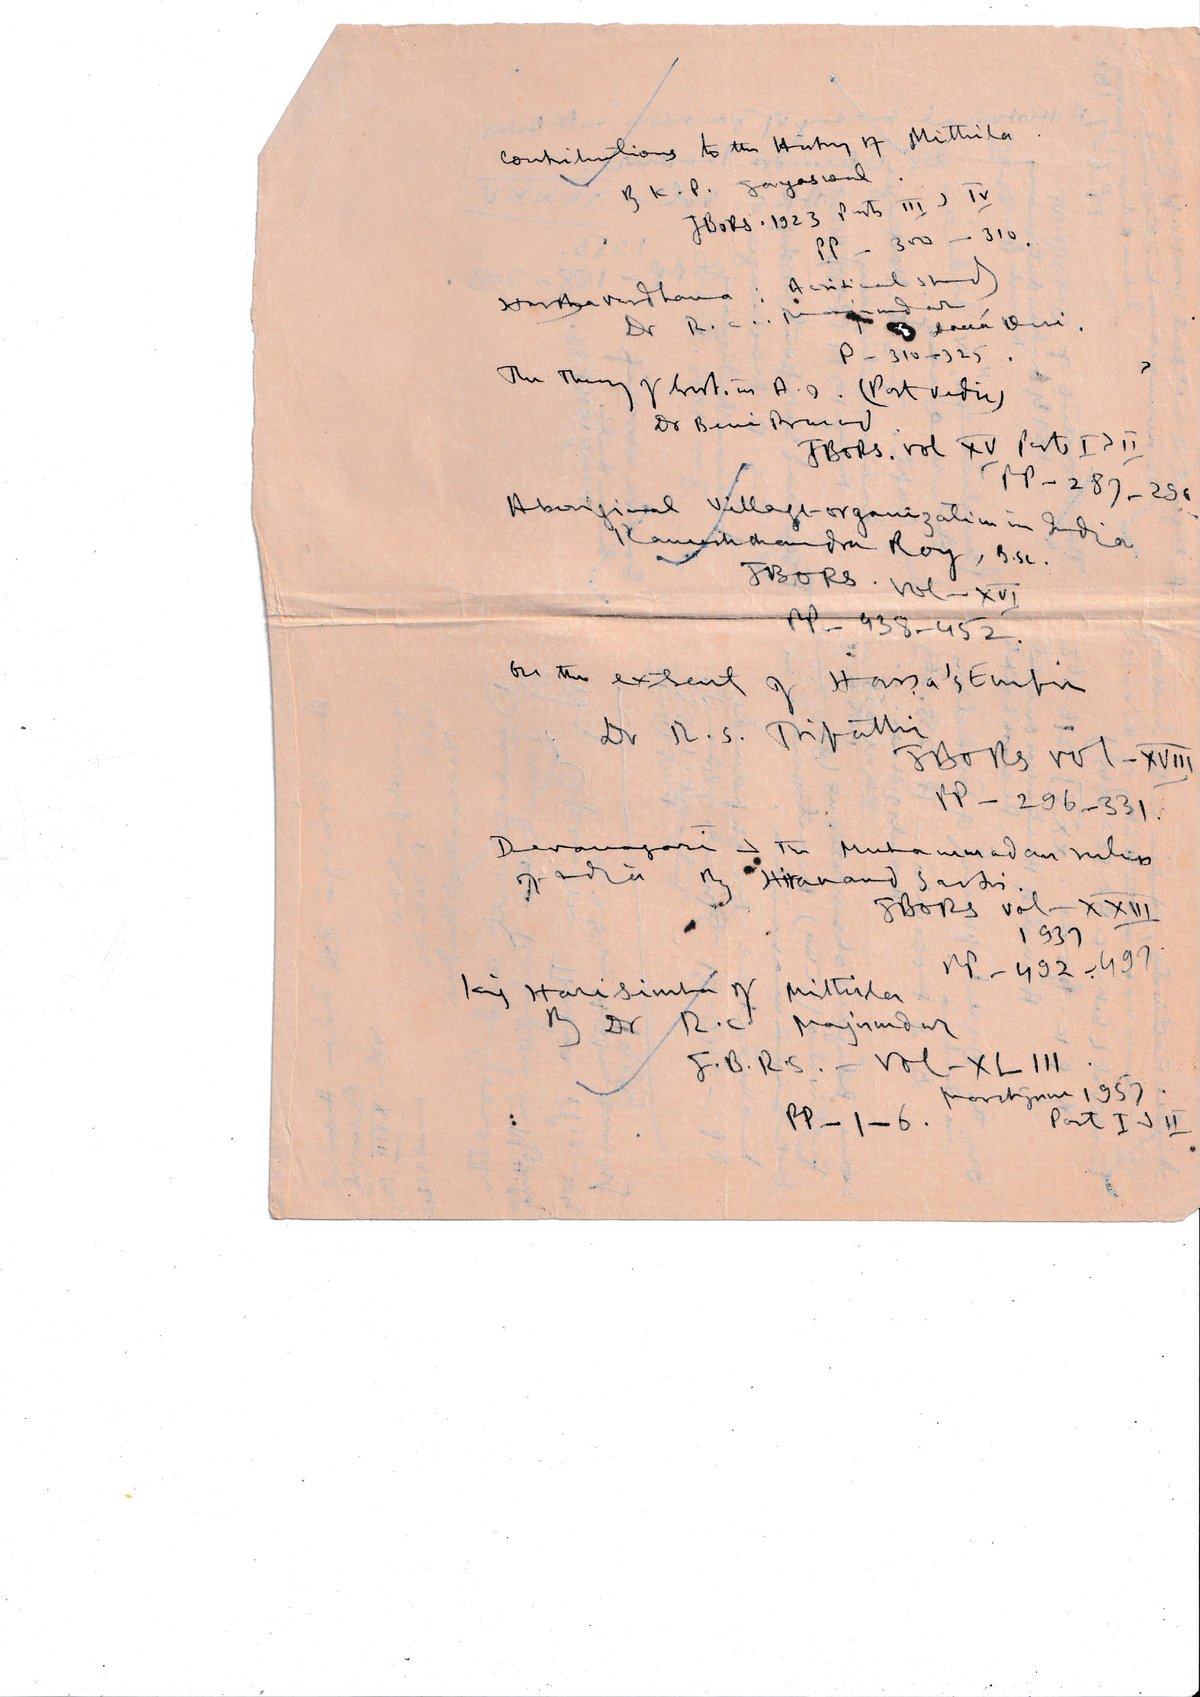 Contributions to the History of Mithila.
By K.P. Jayaswal.
JBORS. 1923 Parts III & IV
PP - 300 - 310.
Harshavardhana: A critical study
Dr R.C. Majumdar
P - 310 - 325.
The Theory of Govt. in A.I. (Post Vedic)
Dr Beni Prasad
JBORS. Vol XV Parts I & II
PP - 287 -
Aboriginal Village-organization in India
Rameshchandra Roy, B.Sc.
JBORS. Vol - XVI
PP - 438-452.
On the extent of Harsa's Empire
Dr R.S. Tripathi
JBORS Vol - XVIII
PP - 296-331.
Devanagari & the Muhammadan rulers
of India By Hiranand Sastri.
JBORS Vol - XXIII
1937
PP - 492-497
King Harisimha of Mithila
By Dr R.C Majumdar
J.B.R.S. - Vol - XLIII.
March-June 1957.
PP - 1 - 6. Part I & II